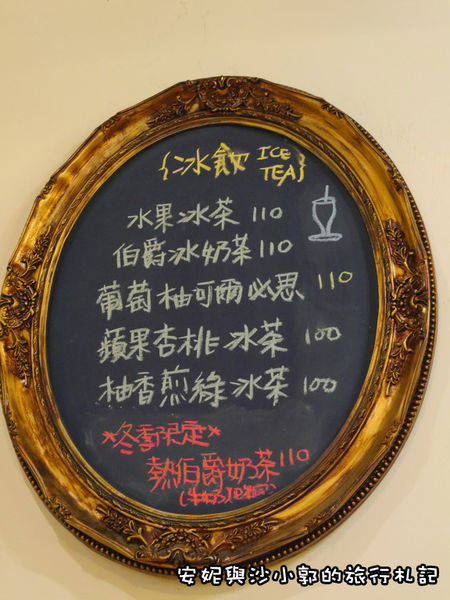 {冰飲 ICE TEA}
水果冰茶 110
伯爵冰奶茶 110
葡萄柚可爾必思 110
蘋果杏桃冰茶 100
柚香煎綠冰茶 100
*冬季限定*
熱伯爵奶茶 110
安妮與沙小郭的旅行札記